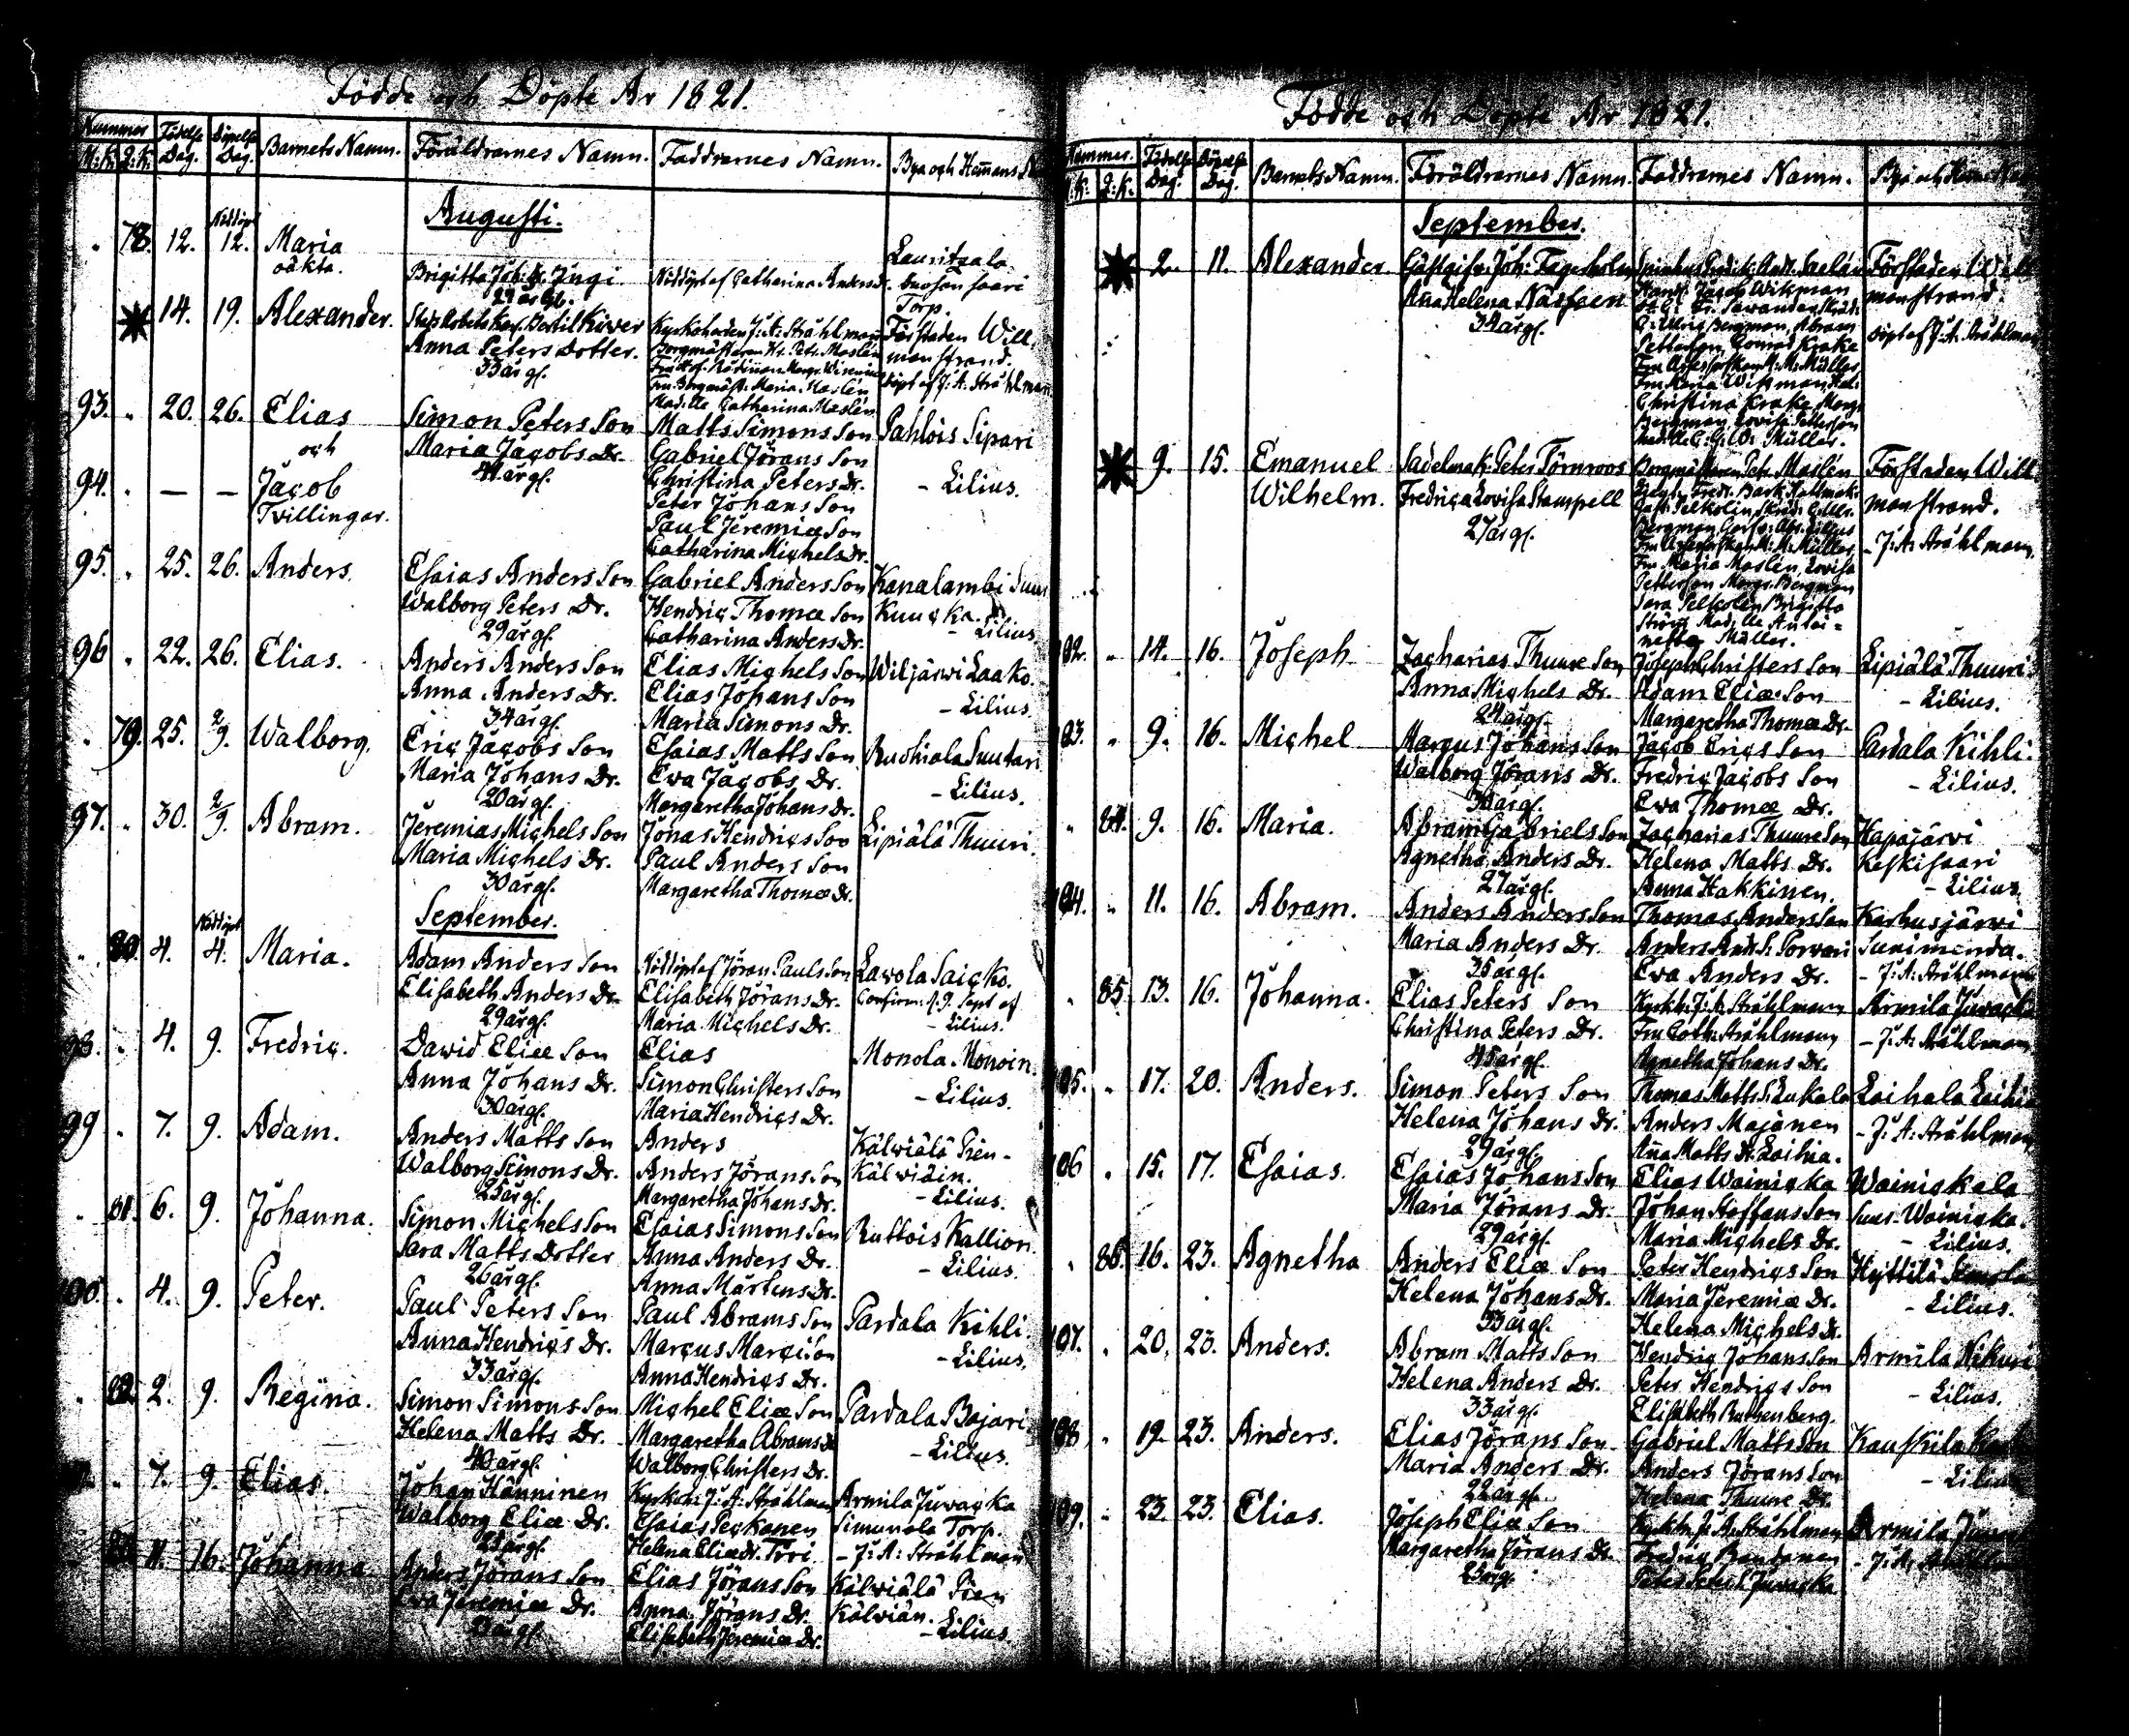 Födde och Döpte År 1821.
Nummer Födelse Dag. Döpelse Dag. Barnets Namn. Föräldrarnes Namn. Faddrarnes Namn. Bya och Hemans
M:K: Q:K:
Augusti.
78. 12. Nöddöpt 12. Maria oäkta.
Brigitta Joh: Dr. Jngi
29 år gl.
Nöddöpt af Catharina Anders Dr.
Lauritzala
saari
Torp.
14. 19. Alexander.
Bertil Kiver
Anna Peters Dotter.
33 år gl.
Kyrkoherden J: A: Stråhlman
Borgmästaren Hr. Petr. Maslén
Fru Borgmäst: Maria Maslén
Mad:lle Catharina Maslén
Förstaden Will-
manstrand.
döpt af J: A: Stråhlman
93. 20. 26. Elias
och
94. — — Jacob
Tvillingar.
Simon Peters Son
Maria Jacobs Dr.
41 år gl.
Matts Simons Son
Gabriel Jörans Son
Christina Peters Dr.
Peter Johans Son
Paul Jeremiæ Son
Catharina Michels Dr.
Pahlois Sipari
- Lilius.
95. 25. 26. Anders.
Esaias Anders Son
Walborg Peters Dr.
29 år gl.
Gabriel Anders Son
Hendric Thomæ Son
Catharina Anders Dr.
Kanalambi Suur
Kuucka.
- Lilius.
96 22. 26. Elias.
Anders Anders Son
Anna Anders Dr.
34 år gl.
Elias Michels Son
Elias Johans Son
Maria Simons Dr.
Wiljärwi Laako.
- Lilius.
79. 25. 2/9. Walborg.
Eric Jacobs Son
Maria Johans Dr.
20 år gl.
Esaias Matts Son
Eva Jacobs Dr.
Margaretha Johans Dr.
Ruohiala Suutari
- Lilius.
97. 30. 2/9. Abram.
Jeremias Michels Son
Maria Michels Dr.
30 år gl.
Jonas Hendrics Son
Paul Anders Son
Margaretha Thomæ Dr.
Lipiälä Thuuri.
September.
80. 4. Nöddöpt 4. Maria.
Adam Anders Son
Elisabeth Anders Dr.
29 år gl.
Nöddöpt af Jöran Pauls Son
Elisabeth Jörans Dr.
Maria Michels Dr.
Lavola Saicko.
Confirm: d. 9. Sept af
- Lilius.
98. 4. 9. Fredric.
David Eliæ Son
Anna Johans Dr.
30 år gl.
Elias
Simon Christers Son
Maria Hendrics Dr.
Monola Monoin.
- Lilius.
99 7. 9. Adam.
Anders Matts Son
Walborg Simons Dr.
25 år gl.
Anders
Anders Jörans Son
Margaretha Johans Dr.
Kälwiälä Pien-
Kälwiäin.
- Lilius.
81. 6. 9. Johanna.
Simon Michels Son
Sara Matts Dotter
26 år gl.
Esaias Simons Son
Anna Anders Dr.
Anna Mårtens Dr.
Ruttois Kallion.
- Lilius.
100. 4. 9. Peter.
Paul Peters Son
Anna Hendrics Dr.
33 år gl.
Paul Abrams Son
Marcus Marci Son
Anna Hendrics Dr.
Pardala Kihli
- Lilius.
82. 2. 9. Regina.
Simon Simons Son
Helena Matts Dr.
40 år gl.
Michel Eliæ Son
Margaretha Abrams Dr
Walborg Christers Dr.
Pardala Bajari
- Lilius.
7. 9. Elias.
Johan Hänninen
Walborg Eliæ Dr.
25 år gl.
Kyrkoh: J: A: Stråhlman
Esaias Peckonen
Helena Eliæ dr. Troi
Armila Juvacka
Simunola Torp.
- J: A: Stråhlman
11. 16. Johanna.
Anders Jörans Son
Eva Jeremiæ Dr.
Elias Jörans Son
Anna Jörans Dr.
Elisabeth Jeremiæ Dr.
Kälwiälä Pien
Kälwiän.
- Lilius.
Födde och Döpte År 1821.
Nummer. Födelse Dag. Döpelse Dag. Barnets Namn. Föräldrarnes Namn. Faddrarnes Namn. Bya och
Q:K:
September.
2. 11. Alexander
Gästgifv: Joh: Fagerholm
Aña Helena
34 år gl.
Jacob Wikman
Bergman, Abram
Petterson Conrad Krake
M: M: Müller
Fru Maria Wikman
Christina Krake Marg:
Bergman Lovisa Petterson
Mad:lle C: G: W: Müller.
Förstaden Will
manstrand.
döpt af J: A: Stråhlman
9. 15. Emanuel
Wilhelm.
Sadelmak: Peter Törnroos
Fredrica Lovisa Stampell
27 år gl.
Borgmästaren Petr. Maslén
M: M: Müller
Fru Maria Maslén, Lovisa
Petterson Marg: Bergman
Sara Pelkolin Brigitta
Mad:lle Antoi-
netta Müller.
Förstaden Will
manstrand.
- J: A: Stråhlman
102. 14. 16. Joseph
Zacharias Thuure Son
Anna Michels Dr.
24 år gl.
Joseph Christers Son
Adam Eliæ Son
Margaretha Thomæ Dr.
Lipiälä Thuuri
- Lilius.
103. 9. 16. Michel
Marcus Johans Son
Walborg Jörans Dr.
30 år gl.
Jacob Erics Son
Fredric Jacobs Son
Eva Thomæ Dr.
Pardala Kihli.
- Lilius.
84. 9. 16. Maria.
Abram Gabriels Son
Agnetha Anders Dr.
27 år gl.
Zacharias Thuure Son
Helena Matts Dr.
Anna Hakkinen.
Hapajärvi
Keskisaari
- Lilius.
104. 11. 16. Abram.
Anders Anders Son
Maria Anders Dr.
35 år gl.
Thomas Anders Son
Anders And: S. Porvari
Eva Anders Dr.
Karhusjärvi
- J: A: Stråhlman
85 13. 16. Johanna.
Elias Peters Son
Christina Peters Dr.
45 år gl.
Kyrkh: J: A: Stråhlman
Fru Cath: Stråhlman
Agnetha Johans Dr.
Armila Juvacka
- J: A: Stråhlman
105. 17. 20. Anders.
Simon Peters Son
Helena Johans Dr.
29 år gl.
Thomas Matts S. Lukala
Anders Majanen
Aña Matts Dr. Laihia.
Laihala Laihia
- J: A: Stråhlman
106 15. 17. Esaias.
Esaias Johans Son
Maria Jörans Dr.
29 år gl.
Elias Wainicka
Johan Staffans Son
Maria Michels Dr.
Wainickala
Suur-Wainicka.
- Lilius.
86. 16. 23. Agnetha
Anders Eliæ Son
Helena Johans Dr.
33 år gl.
Peter Hendrics Son
Maria Jeremiæ Dr.
Helena Michels Dr.
Hyttilä
- Lilius.
107. 20. 23. Anders.
Abram Matts Son
Helena Anders Dr.
33 år gl.
Hendric Johans Son
Peter Hendrics Son
Elisabeth Ruthenberg.
Armila Nikuri
- Lilius.
108 19 23. Anders.
Elias Jörans Son
Maria Anders Dr.
22 år gl.
Gabriel Matts Son
Anders Jörans Son
Helena Thuure Dr.
Kauskila
- Lilius
109. 23. 23. Elias.
Joseph Eliæ Son
Margaretha Jörans Dr.
25 år gl.
Kyrkh: J: A: Stråhlman
Fredric Bandanen
Peter Peters S. Juvacka
Armila
- J: A: